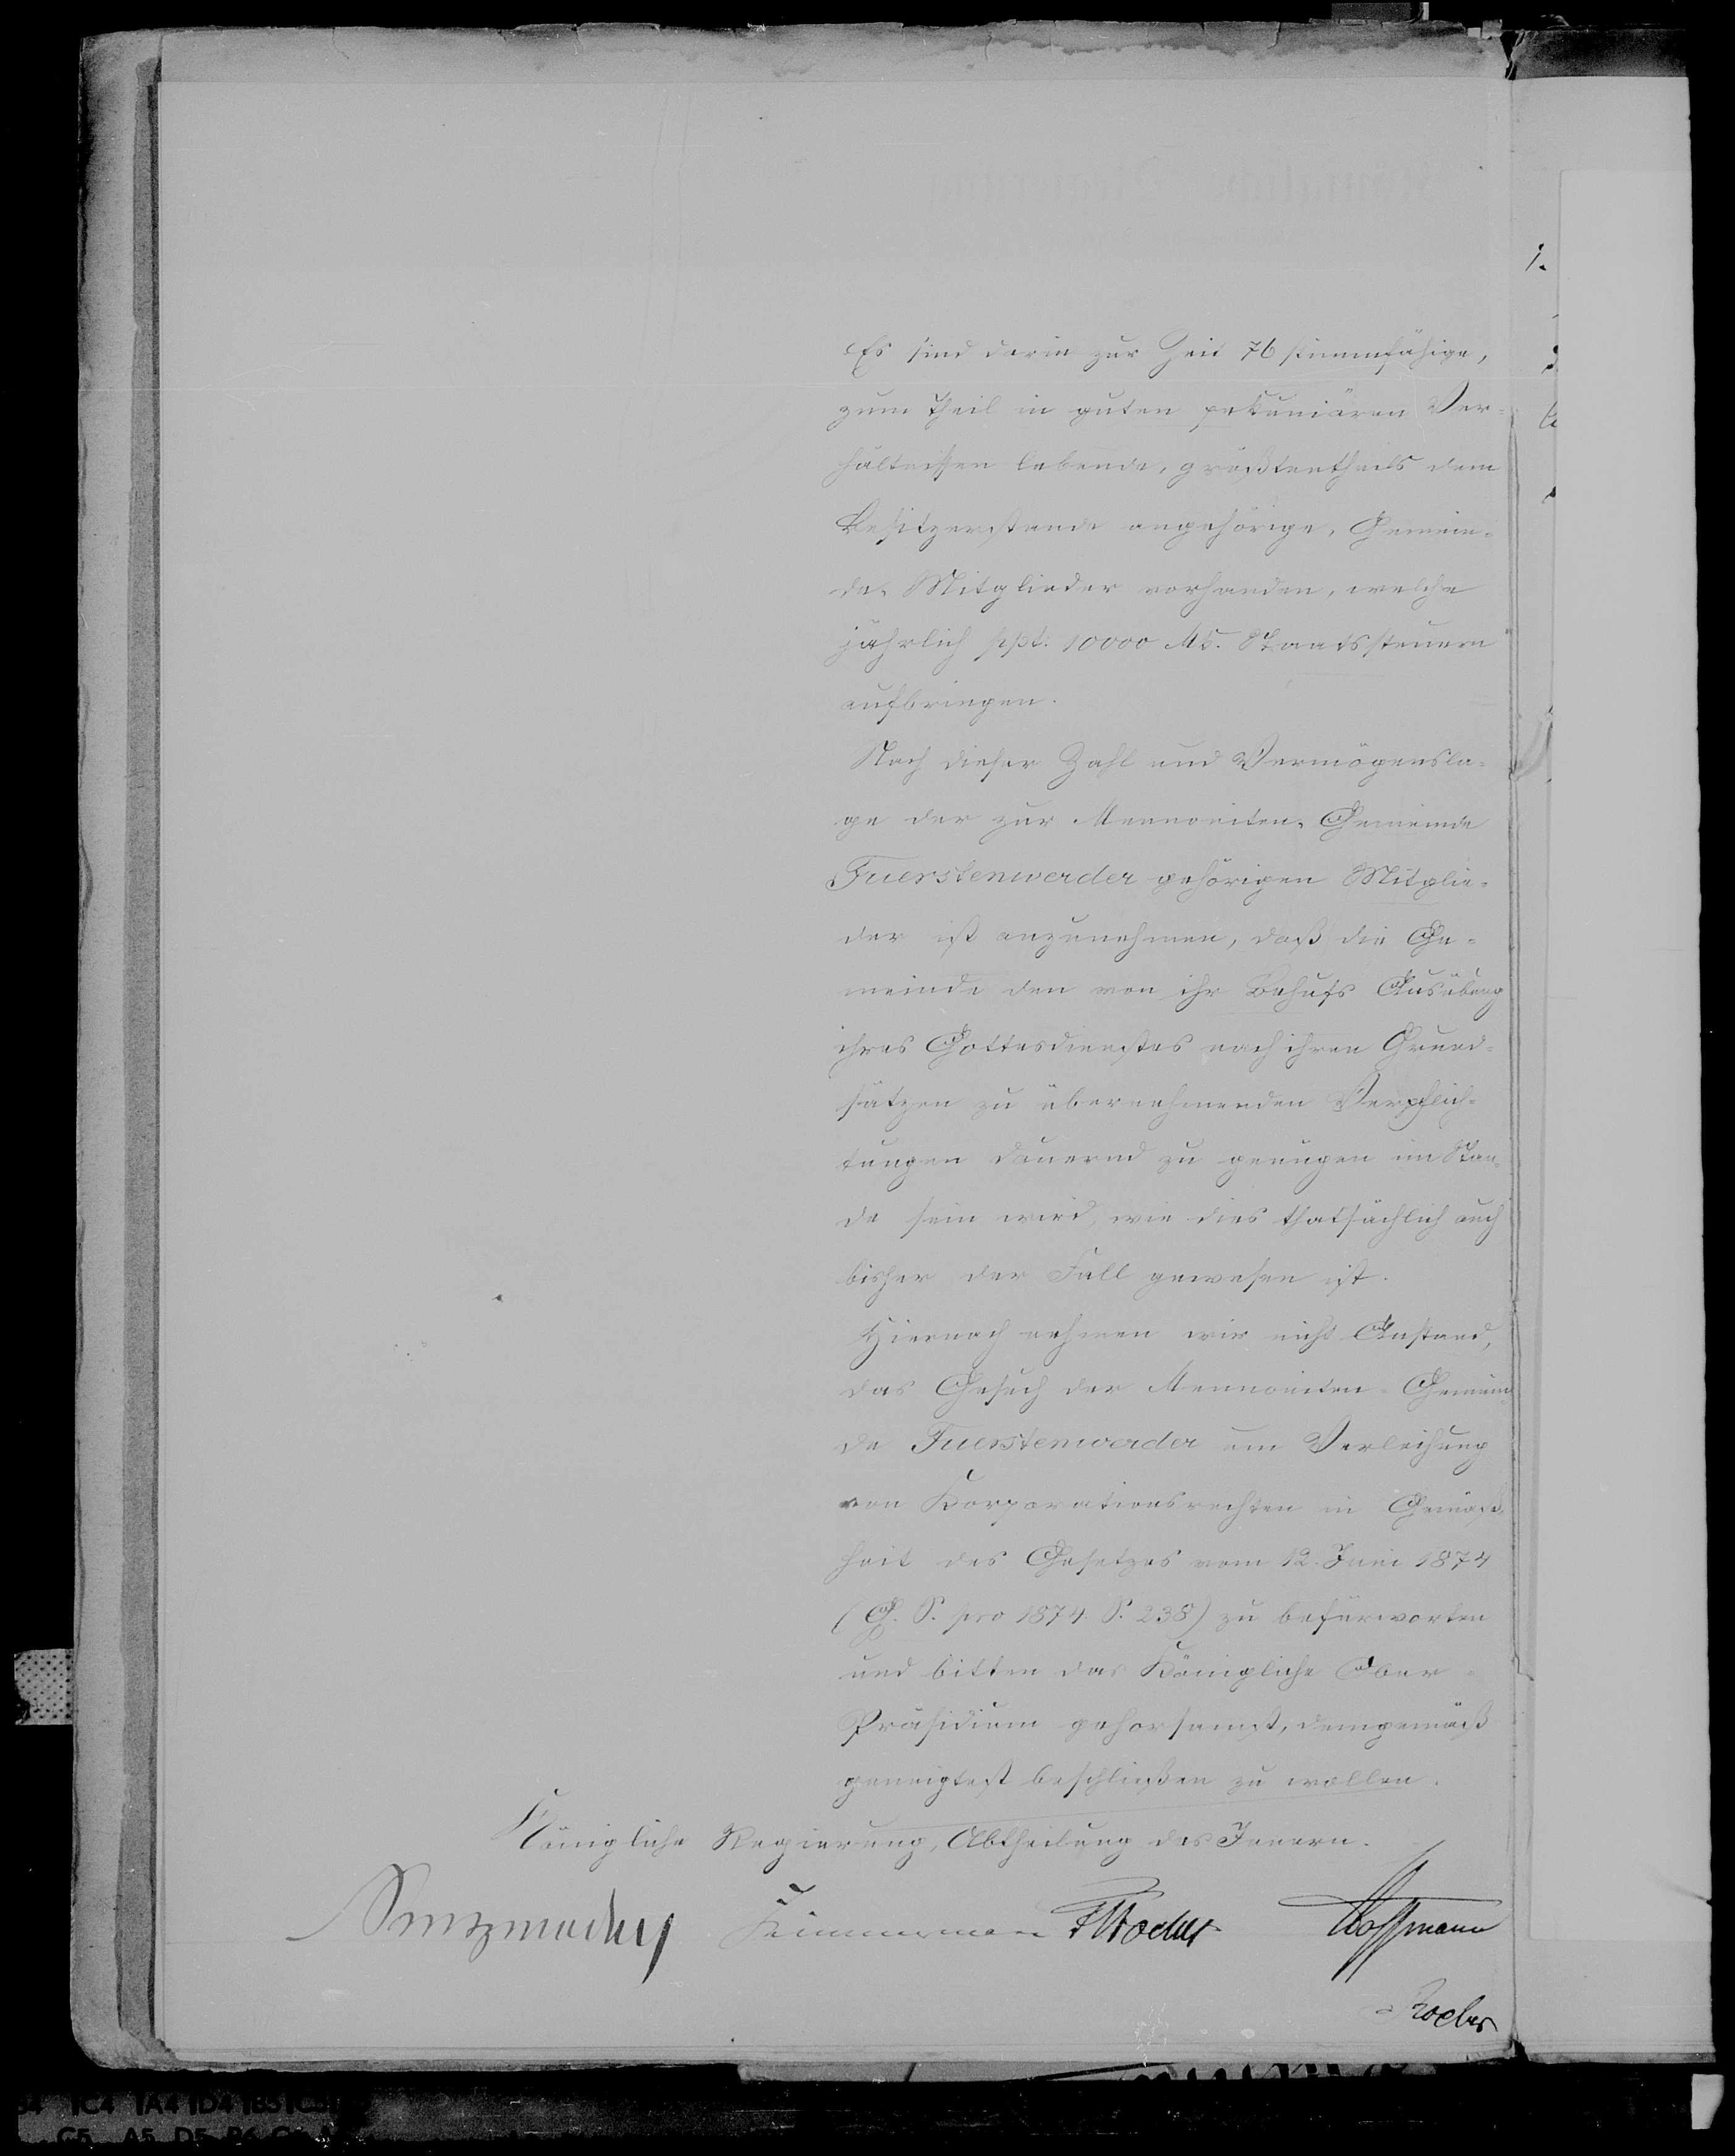 Es sind darin zur Zeit 76 stimmfähige,
zum Theil in guten pekuniären Ver-
hältnissen lebende, größtentheils dem
Besitzerstande angehörige, Gemein-
de-Mitglieder vorhanden, welche
jährlich ppt. 10000 Mk. Staatssteuern
aufbringen.
Nach dieser Zahl und Vermögensla-
ge der zur Mennoniten-Gemeinde
Fuerstenwerder gehörigen Mitglie-
der ist anzunehmen, daß die Ge-
meinde den von ihr Behufs Ausübung
ihres Gottesdienstes nach ihren Grund-
sätzen zu übernehmenden Verpflich-
tungen dauernd zu genügen im Stan-
de sein wird, wie dies thatsächlich auch
bisher der Fall gewesen ist.
Hiernach nehmen wir nicht Anstand,
das Gesuch der Mennoniten-Gemein-
de Fuerstenwerder um Verleihung
von Korporationsrechten in Gemäß-
heit des Gesetzes vom 12. Juni 1874
(G. S. pro 1874 S. 238) zu befürworten
und bitten das Königliche Ober-
Präsidium gehorsamst, demgemäß
geneigtest beschließen zu wollen.
Königliche Regierung, Abtheilung des Innern.
Hoffmann
1.